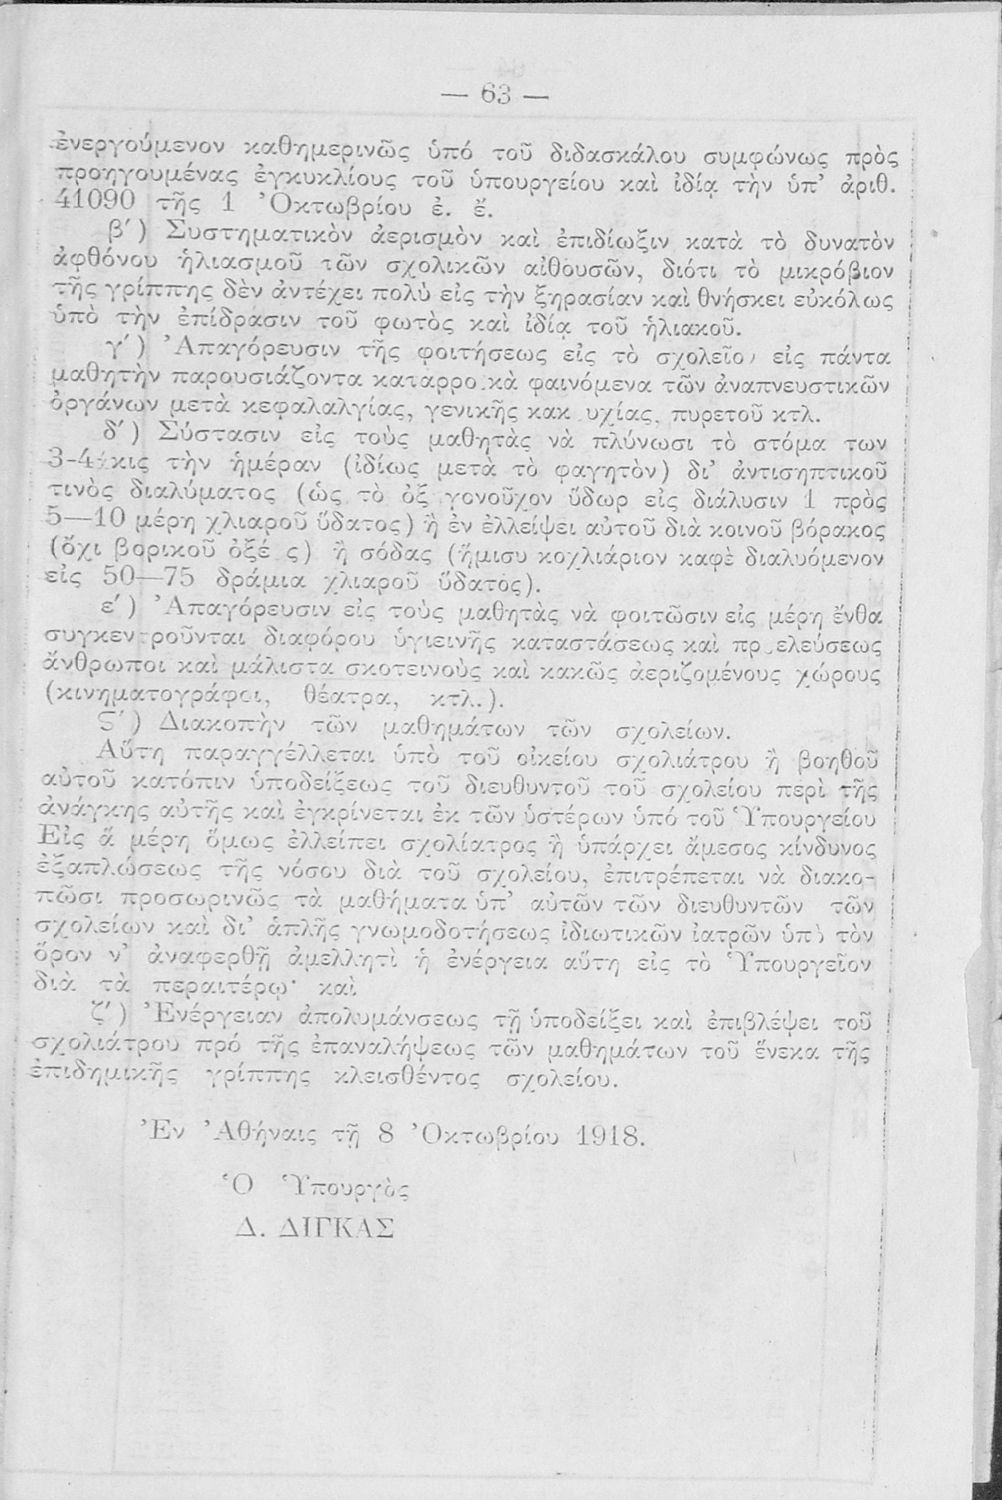 — 63 —
ἐνεργούμενον καθημερινῶς ὑπό τοῦ διδασκάλου συμφώνως πρὸς
προηγουμένας ἐγκυκλίους τοῦ ὑπουργείου καὶ ἰδίᾳ τὴν ὑπ’ ἀριθ.
41090 τῆς 1 Ὀκτωβρίου ἐ. ἔ.
β′) Συστηματικὸν ἀερισμὸν καὶ ἐπιδίωξιν κατὰ τὸ δυνατὸν
ἀφθόνου ἡλιασμοῦ τῶν σχολικῶν αἰθουσῶν, διότι τὸ μικρόβιον
τῆς γρίππης δὲν ἀντέχει πολὺ εἰς τὴν ξηρασίαν καὶ θνήσκει εὐκόλως
ὑπὸ τὴν ἐπίδρασιν τοῦ φωτὸς καὶ ἰδίᾳ τοῦ ἡλιακοῦ.
γ′) Ἀπαγόρευσιν τῆς φοιτήσεως εἰς τὸ σχολεῖον εἰς πάντα
μαθητὴν παρουσιάζοντα καταρροϊκὰ φαινόμενα τῶν ἀναπνευστικῶν
ὀργάνων μετὰ κεφαλαλγίας, γενικῆς κακουχίας, πυρετοῦ κτλ.
δ′) Σύστασιν εἰς τοὺς μαθητὰς νὰ πλύνωσι τὸ στόμα των
3-4άκις τὴν ἡμέραν (ἰδίως μετὰ τὸ φαγητὸν) δι’ ἀντισηπτικοῦ
τινὸς διαλύματος (ὡς τὸ ὀξυγονοῦχον ὕδωρ εἰς διάλυσιν 1 πρὸς
5—10 μέρη χλιαροῦ ὕδατος) ἢ ἐν ἐλλείψει αὐτοῦ διὰ κοινοῦ βόρακος
(ὄχι βορικοῦ ὀξέος) ἢ σόδας (ἥμισυ κοχλιάριον καφὲ διαλυόμενον
εἰς 50—75 δράμια χλιαροῦ ὕδατος).
ε′) Ἀπαγόρευσιν εἰς τοὺς μαθητὰς νὰ φοιτῶσιν εἰς μέρη ἔνθα
συγκεντροῦνται διαφόρου ὑγιεινῆς καταστάσεως καὶ προελεύσεως
ἄνθρωποι καὶ μάλιστα σκοτεινοὺς καὶ κακῶς ἀεριζομένους χώρους
(κινηματογράφοι, θέατρα, κτλ.).
Ϛ′) Διακοπὴν τῶν μαθημάτων τῶν σχολείων.
Αὕτη παραγγέλλεται ὑπὸ τοῦ οἰκείου σχολιάτρου ἢ βοηθοῦ
αὐτοῦ κατόπιν ὑποδείξεως τοῦ διευθυντοῦ τοῦ σχολείου περὶ τῆς
ἀνάγκης αὐτῆς καὶ ἐγκρίνεται ἐκ τῶν ὑστέρων ὑπό τοῦ Ὑπουργείου
Εἰς ἃ μέρη ὅμως ἐλλείπει σχολίατρος ἢ ὑπάρχει ἄμεσος κίνδυνος
ἐξαπλώσεως τῆς νόσου διὰ τοῦ σχολείου, ἐπιτρέπεται νὰ διακο-
πῶσι προσωρινῶς τὰ μαθήματα ὑπ’ αὐτῶν τῶν διευθυντῶν τῶν
σχολείων καὶ δι’ ἁπλῆς γνωμοδοτήσεως ἰδιωτικῶν ἰατρῶν ὑπὸ τὸν
ὅρον ν’ ἀναφερθῇ ἀμελλητὶ ἡ ἐνέργεια αὕτη εἰς τὸ Ὑπουργεῖον
διὰ τὰ περαιτέρω· καὶ
ζ′) Ἐνέργειαν ἀπολυμάνσεως τῇ ὑποδείξει καὶ ἐπιβλέψει τοῦ
σχολιάτρου πρό τῆς ἐπαναλήψεως τῶν μαθημάτων τοῦ ἕνεκα τῆς
ἐπιδημικῆς γρίππης κλεισθέντος σχολείου.
Ἐν Ἀθήναις τῇ 8 Ὀκτωβρίου 1918.
Ὁ Ὑπουργὸς
Δ. ΔΙΓΚΑΣ